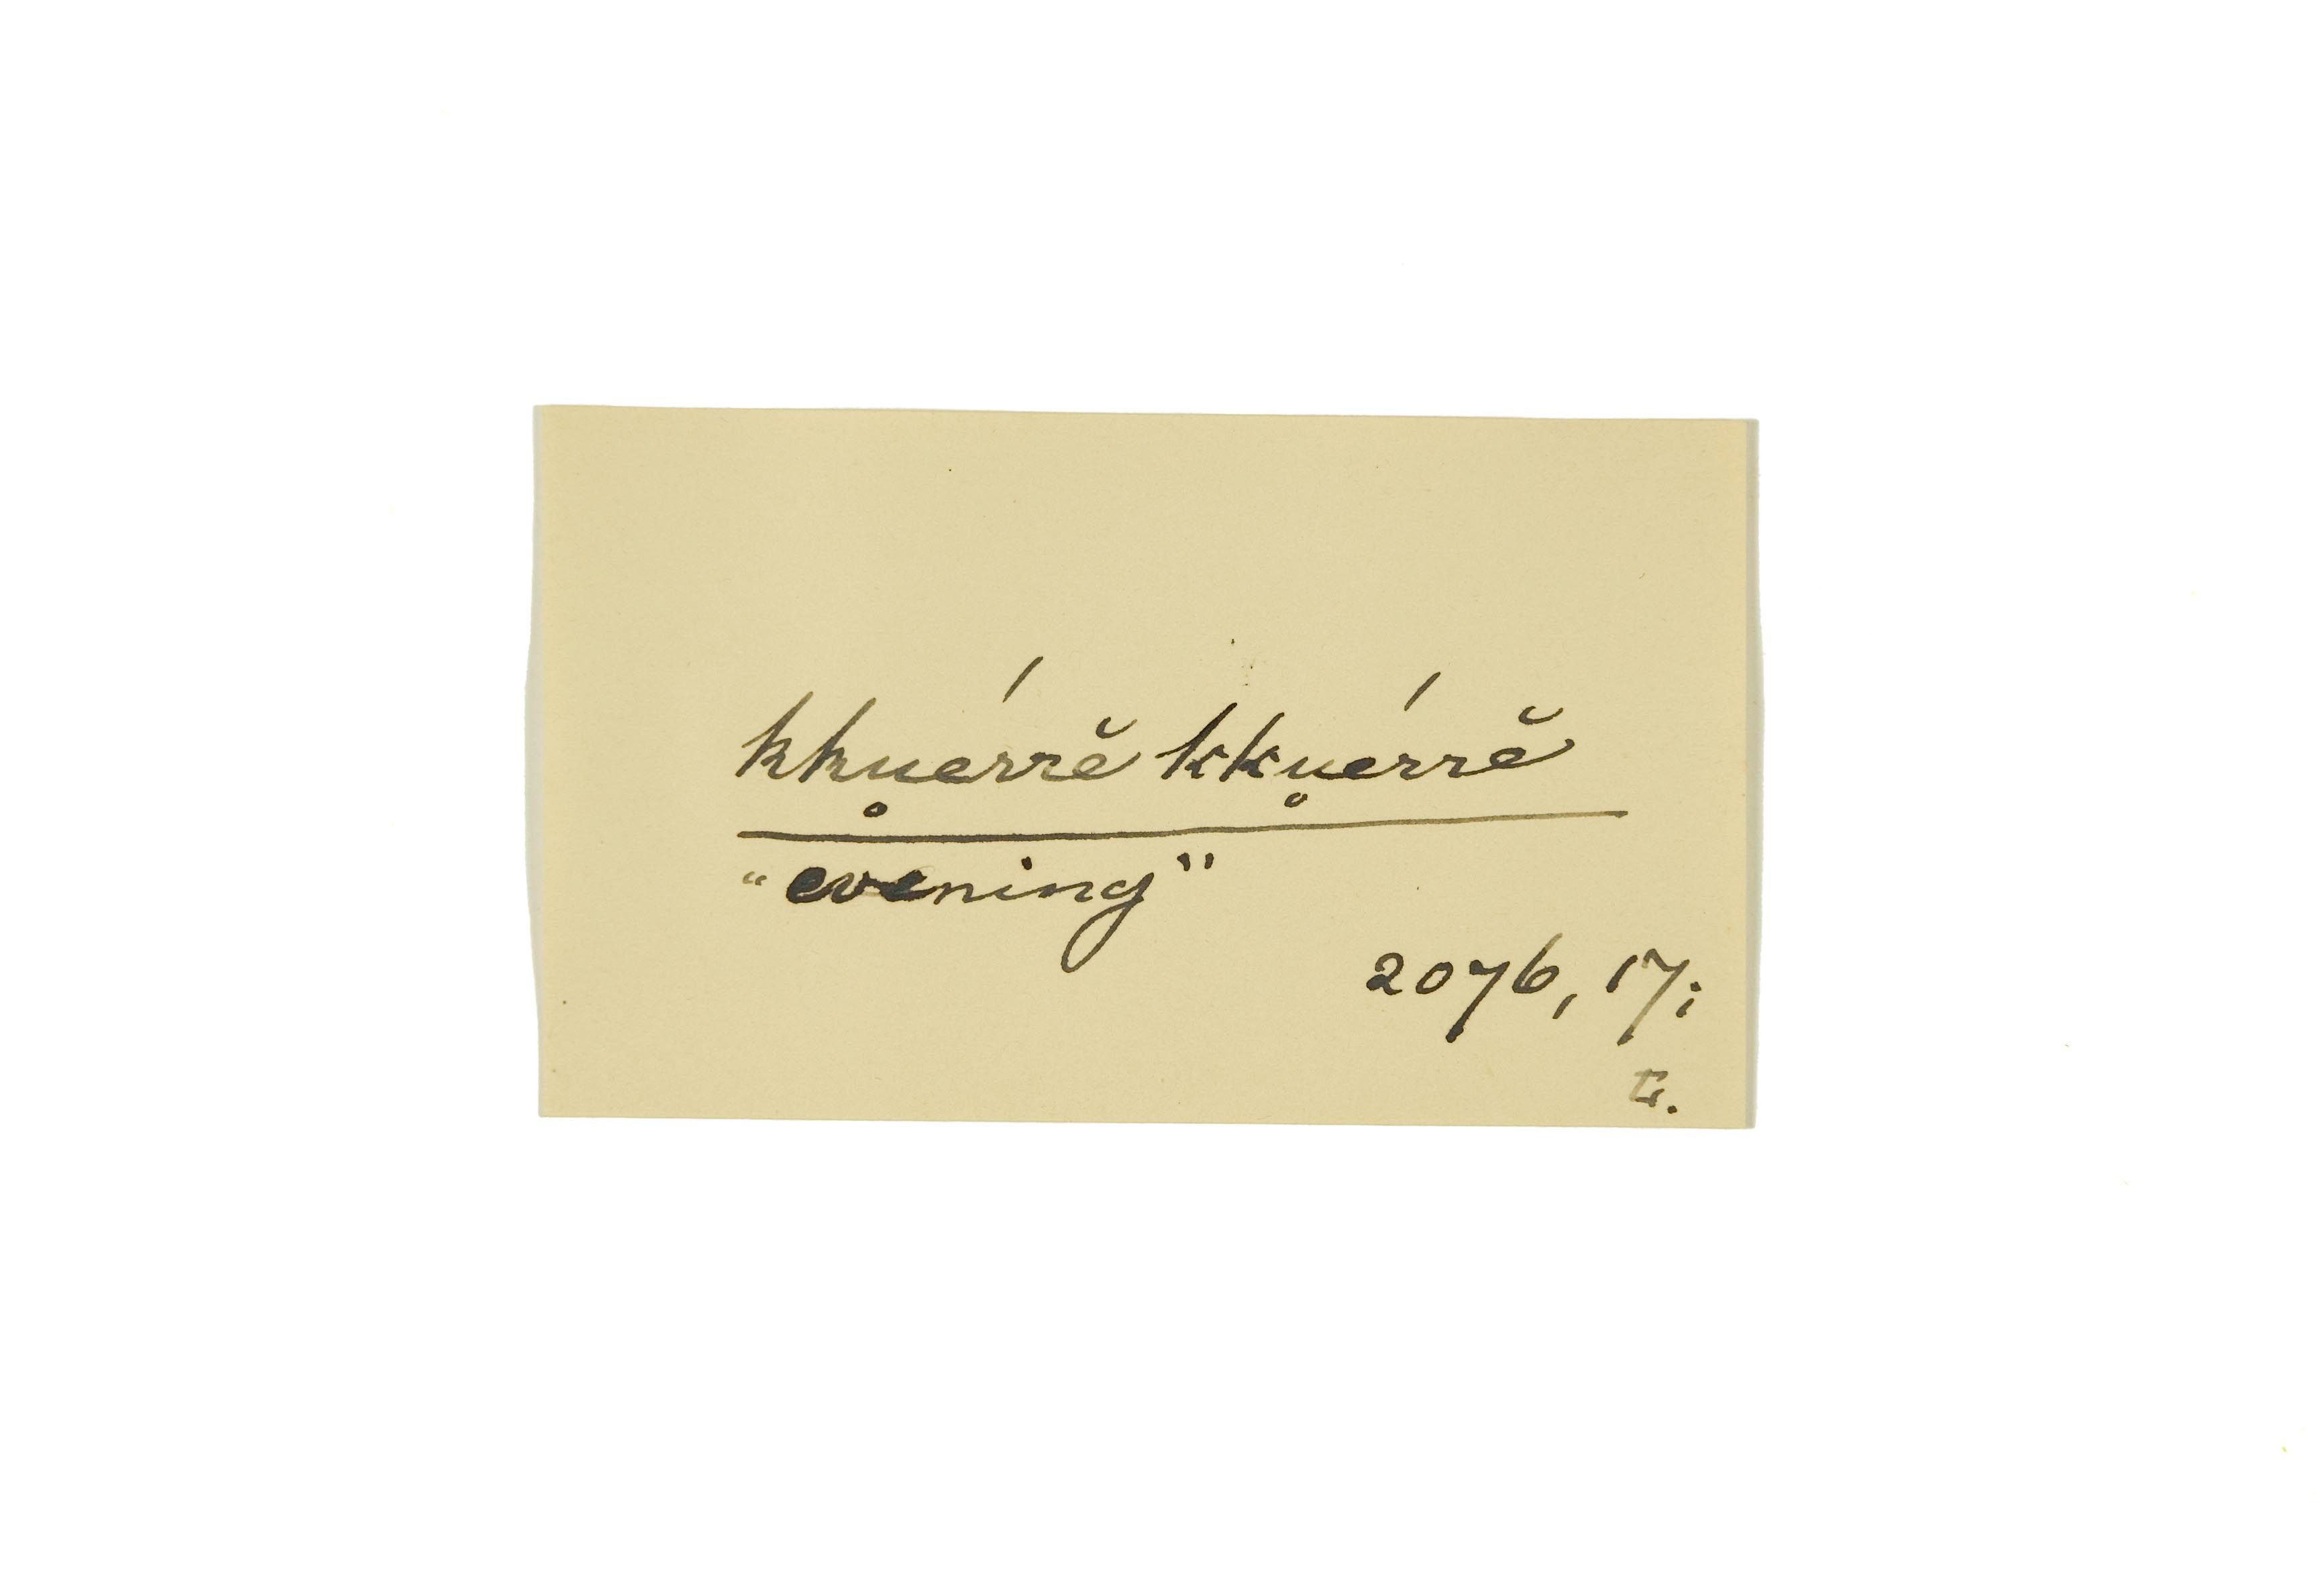 kku̥érrĕ kku̥érrĕ
"evening"
2076, 17;
G.